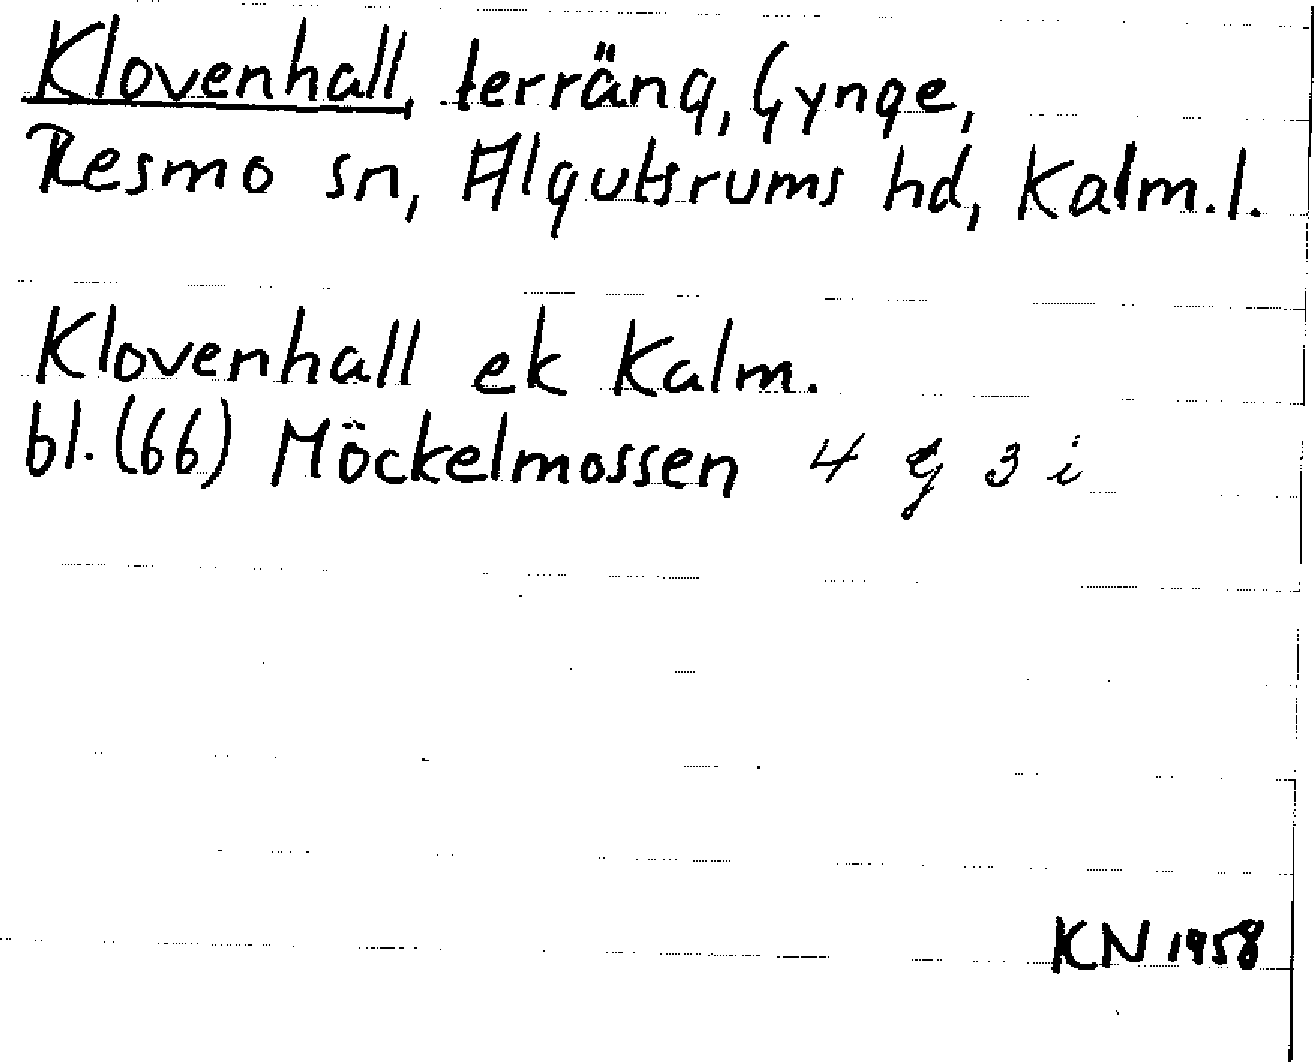 Klovenhall, terräng, Gynge,
Resmo sn, Algutsrums hd, Kalm.l.
Klovenhall ek Kalm.
bl. (66) Möckelmossen 4 G 3 i
KN 1958